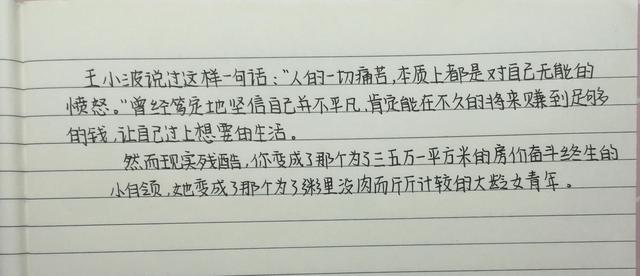 王小波说过这样一句话："人的一切痛苦,本质上都是对自己无能的
愤怒。"曾经笃定地坚信自己并不平凡,肯定能在不久的将来赚到足够
的钱,让自己过上想要的生活。
然而现实残酷,你变成了那个为了三五万一平方米的房价奋斗终生的
小白领,她变成了那个为了粥里没肉而斤斤计较的大龄女青年。